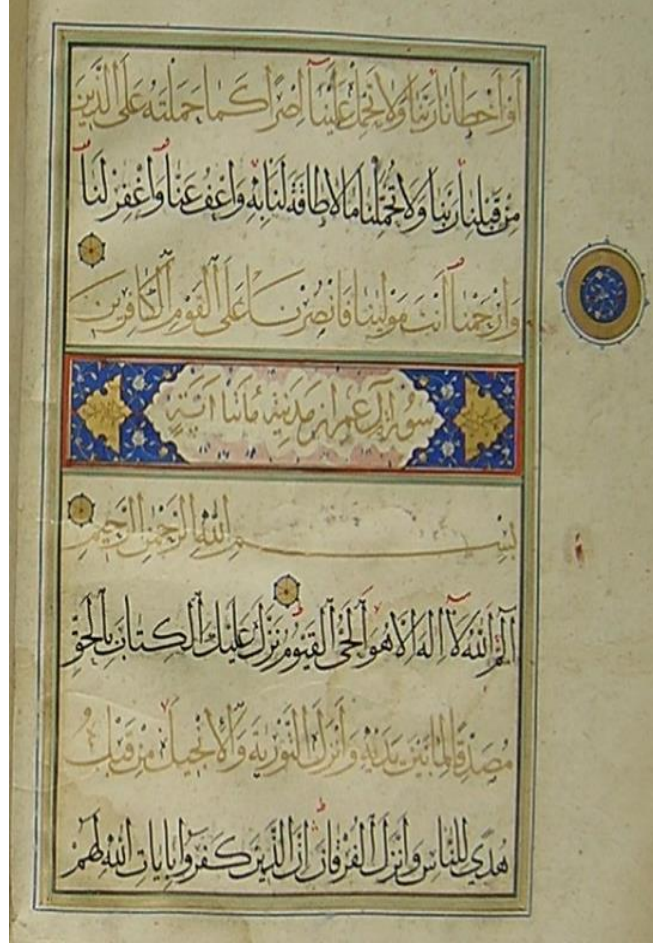 أَوْ أَخْطَأْنَا رَبَّنَا وَلَا تَحْمِلْ عَلَيْنَا إِصْرًا كَمَا حَمَلْتَهُ عَلَى الَّذِينَ
مِنْ قَبْلِنَا رَبَّنَا وَلَا تُحَمِّلْنَا مَا لَا طَاقَةَ لَنَا بِهِ وَاعْفُ عَنَّا وَاغْفِرْ لَنَا
وَارْحَمْنَا أَنْتَ مَوْلَينَا فَانْصُرْنَا عَلَى الْقَوْمِ الْكَافِرِينَ
سورة آل عمران مدنية مائتا آية
بِسْمِ اللهِ الرَّحْمٰنِ الرَّحِيمِ
الٓمٓ اللهُ لَآ اِلٰهَ اِلَّا هُوَ الْحَيُّ الْقَيُّومُ نَزَّلَ عَلَيْكَ الْكِتَابَ بِالْحَقِّ
مُصَدِّقًا لِمَا بَيْنَ يَدَيْهِ وَأَنْزَلَ التَّوْرٰيةَ وَالْإِنْجِيلَ مِنْ قَبْلُ
هُدًى لِلنَّاسِ وَأَنْزَلَ الْفُرْقَانَ إِنَّ الَّذِينَ كَفَرُوا بِاٰيَاتِ اللهِ لَهُمْ